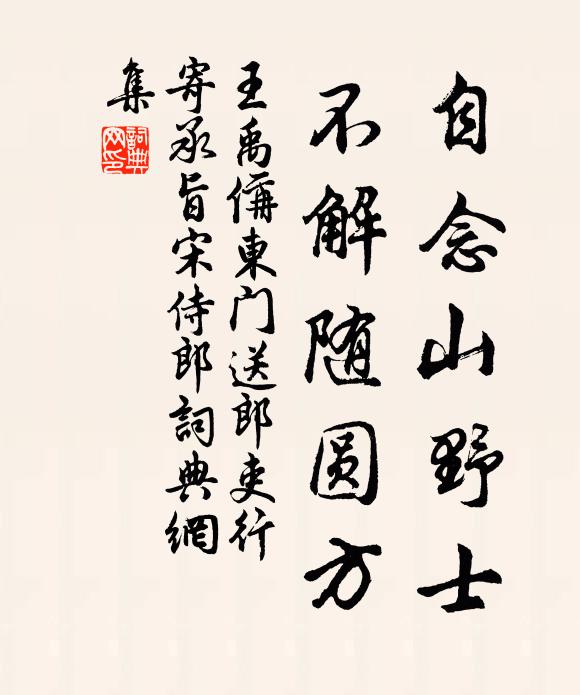 自念山野士
不解随圆方
王禹偁東门送郎吏行
寄承旨宋侍郎詞典網
集
詞典网印